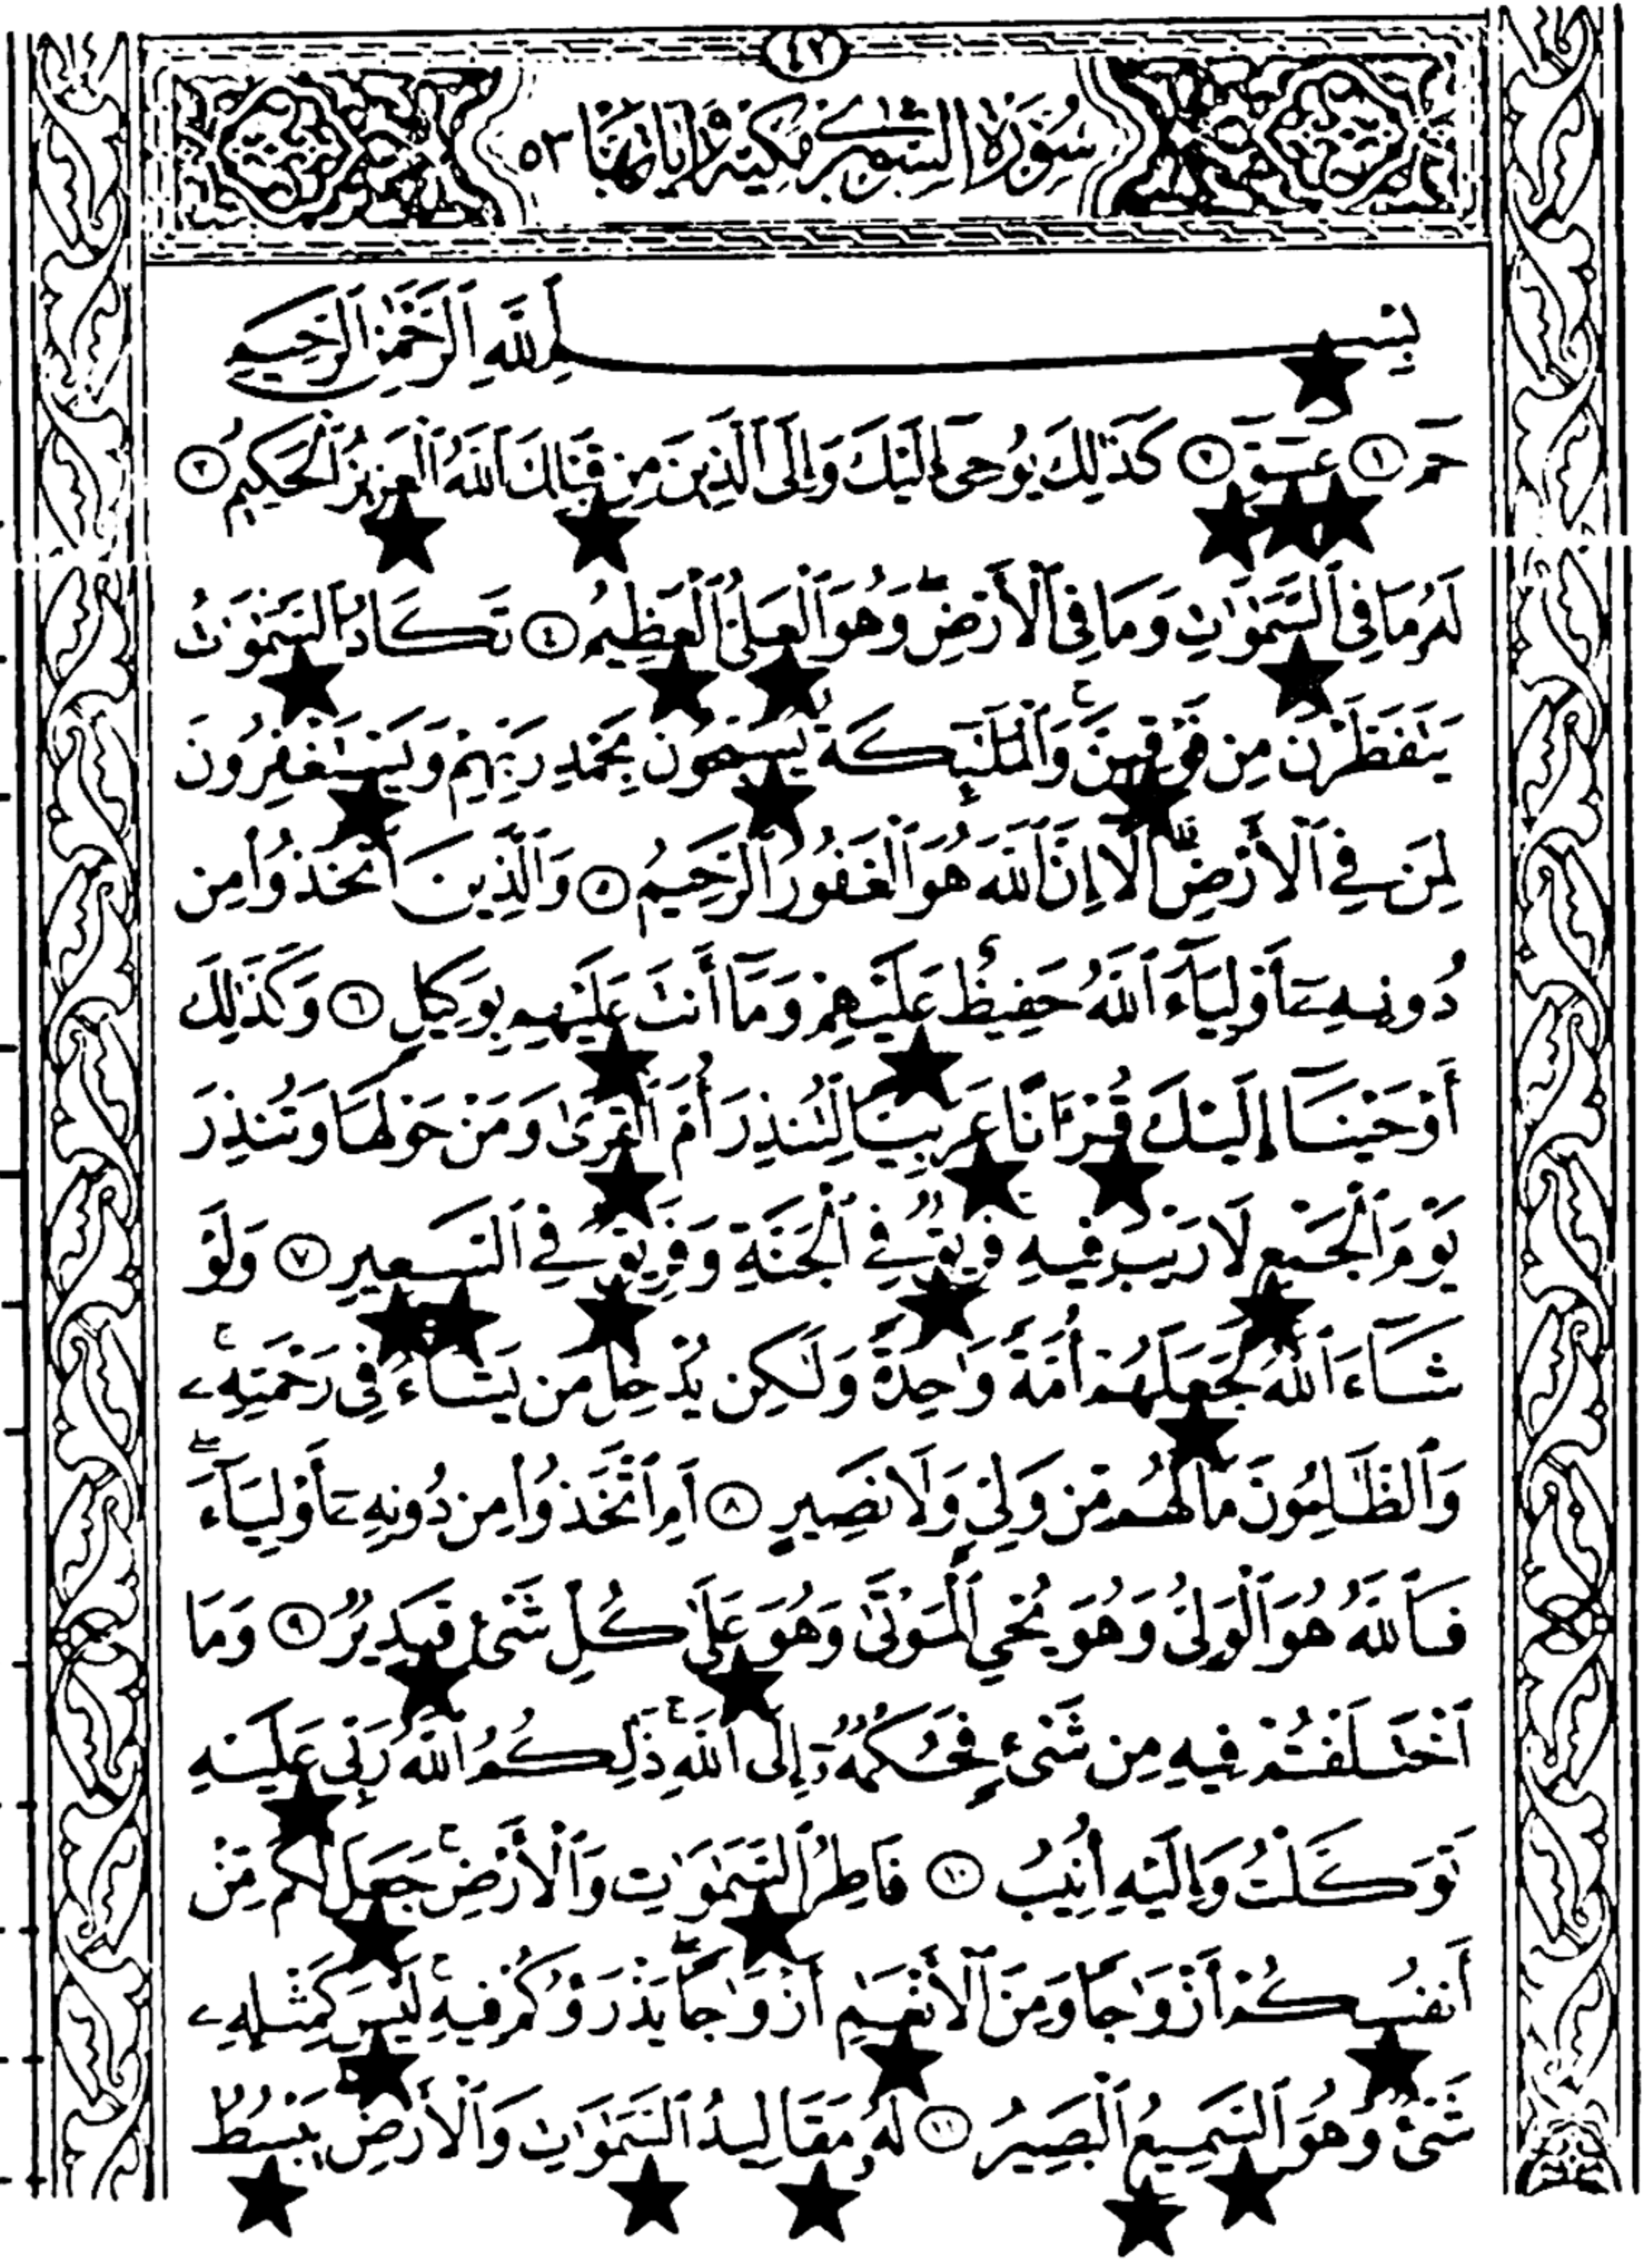 ٤٢
سُورَةُ الشُّورَىٰ مَكِّيَّةٌ وَآيَاتُهَا ٥٣
بِسْمِ ٱللَّهِ ٱلرَّحْمَٰنِ ٱلرَّحِيمِ
حمٓ ١ عٓسٓقٓ ٢ كَذَٰلِكَ يُوحِىٓ إِلَيْكَ وَإِلَى ٱلَّذِينَ مِن قَبْلِكَ ٱللَّهُ ٱلْعَزِيزُ ٱلْحَكِيمُ ٣
لَهُۥ مَا فِى ٱلسَّمَٰوَٰتِ وَمَا فِى ٱلْأَرْضِ ۖ وَهُوَ ٱلْعَلِىُّ ٱلْعَظِيمُ ٤ تَكَادُ ٱلسَّمَٰوَٰتُ
يَتَفَطَّرْنَ مِن فَوْقِهِنَّ ۚ وَٱلْمَلَٰٓئِكَةُ يُسَبِّحُونَ بِحَمْدِ رَبِّهِمْ وَيَسْتَغْفِرُونَ
لِمَن فِى ٱلْأَرْضِ ۗ أَلَآ إِنَّ ٱللَّهَ هُوَ ٱلْغَفُورُ ٱلرَّحِيمُ ٥ وَٱلَّذِينَ ٱتَّخَذُوا۟ مِن
دُونِهِۦٓ أَوْلِيَآءَ ٱللَّهُ حَفِيظٌ عَلَيْهِمْ وَمَآ أَنتَ عَلَيْهِم بِوَكِيلٍ ٦ وَكَذَٰلِكَ
أَوْحَيْنَآ إِلَيْكَ قُرْءَانًا عَرَبِيًّا لِّتُنذِرَ أُمَّ ٱلْقُرَىٰ وَمَنْ حَوْلَهَا وَتُنذِرَ
يَوْمَ ٱلْجَمْعِ لَا رَيْبَ فِيهِ ۚ فَرِيقٌ فِى ٱلْجَنَّةِ وَفَرِيقٌ فِى ٱلسَّعِيرِ ٧ وَلَوْ
شَآءَ ٱللَّهُ لَجَعَلَهُمْ أُمَّةً وَٰحِدَةً وَلَٰكِن يُدْخِلُ مَن يَشَآءُ فِى رَحْمَتِهِۦ ۚ
وَٱلظَّٰلِمُونَ مَا لَهُم مِّن وَلِىٍّ وَلَا نَصِيرٍ ٨ أَمِ ٱتَّخَذُوا۟ مِن دُونِهِۦٓ أَوْلِيَآءَ ۖ
فَٱللَّهُ هُوَ ٱلْوَلِىُّ وَهُوَ يُحْىِ ٱلْمَوْتَىٰ وَهُوَ عَلَىٰ كُلِّ شَىْءٍ قَدِيرٌ ٩ وَمَا
ٱخْتَلَفْتُمْ فِيهِ مِن شَىْءٍ فَحُكْمُهُۥٓ إِلَى ٱللَّهِ ۚ ذَٰلِكُمُ ٱللَّهُ رَبِّى عَلَيْهِ
تَوَكَّلْتُ وَإِلَيْهِ أُنِيبُ ١٠ فَاطِرُ ٱلسَّمَٰوَٰتِ وَٱلْأَرْضِ ۚ جَعَلَ لَكُم مِّنْ
أَنفُسِكُمْ أَزْوَٰجًا وَمِنَ ٱلْأَنْعَٰمِ أَزْوَٰجًا ۖ يَذْرَؤُكُمْ فِيهِ ۚ لَيْسَ كَمِثْلِهِۦ
شَىْءٌ ۖ وَهُوَ ٱلسَّمِيعُ ٱلْبَصِيرُ ١١ لَهُۥ مَقَالِيدُ ٱلسَّمَٰوَٰتِ وَٱلْأَرْضِ ۖ يَبْسُطُ